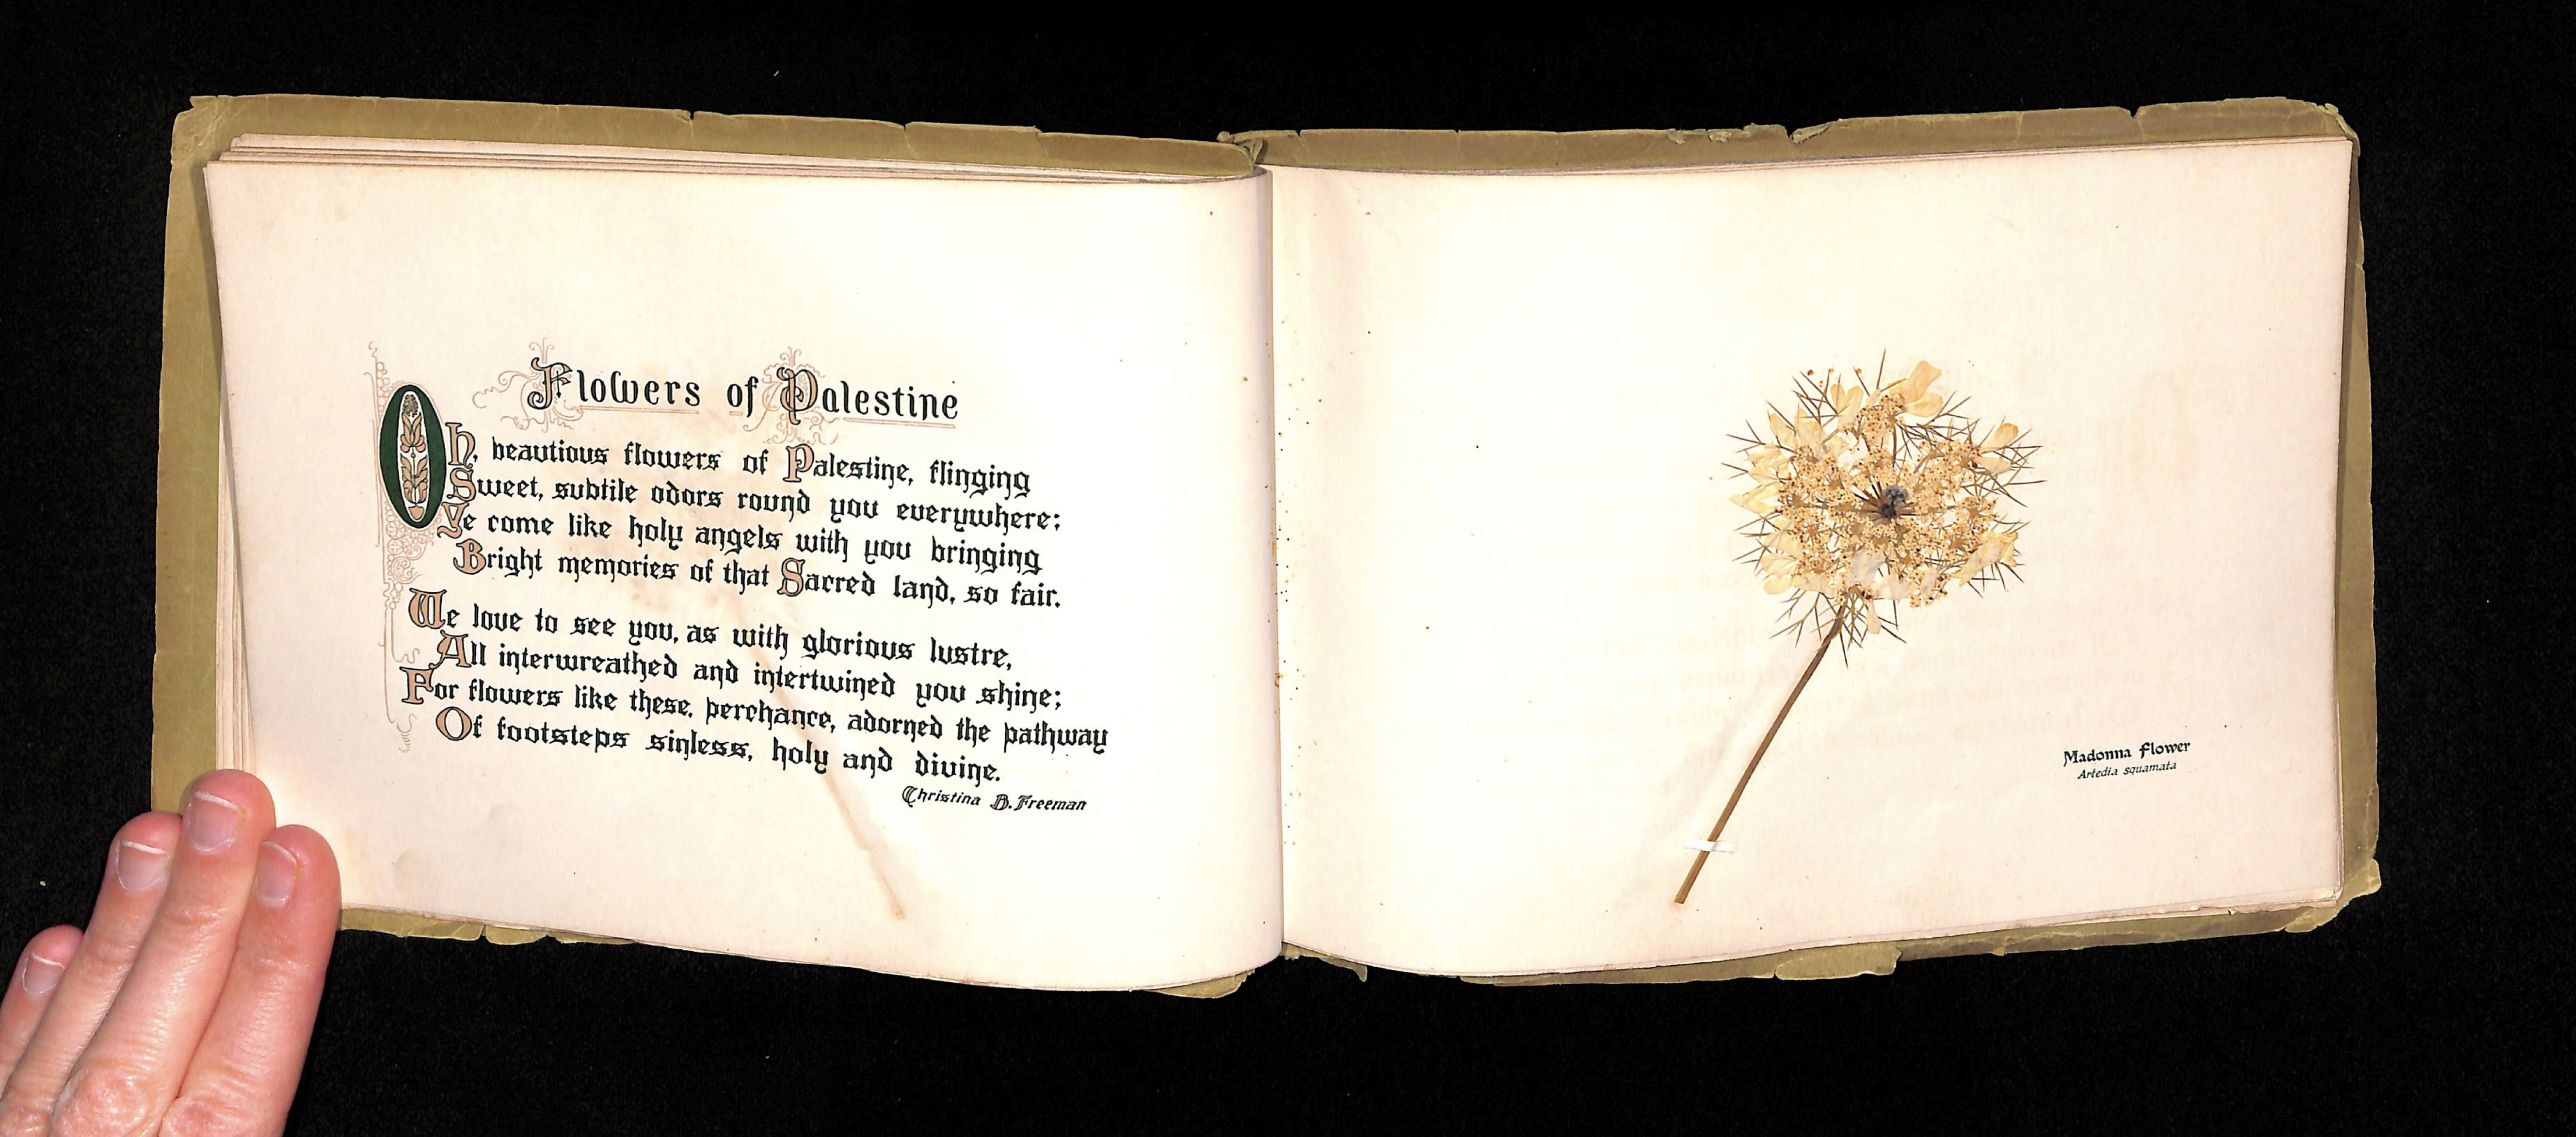 Flowers of Palestine
Oh, beautious flowers of Palestine, flinging
Sweet, subtile odors round you everywhere;
Ye come like holy angels with you bringing
Bright memories of that Sacred land, so fair.
We love to see you, as with glorious lustre,
All interwreathed and intertwined you shine;
For flowers like these, perchance, adorned the pathway
Of footsteps sinless, holy and divine.
Christina B. Freeman
Madonna Flower
Artedia squamata